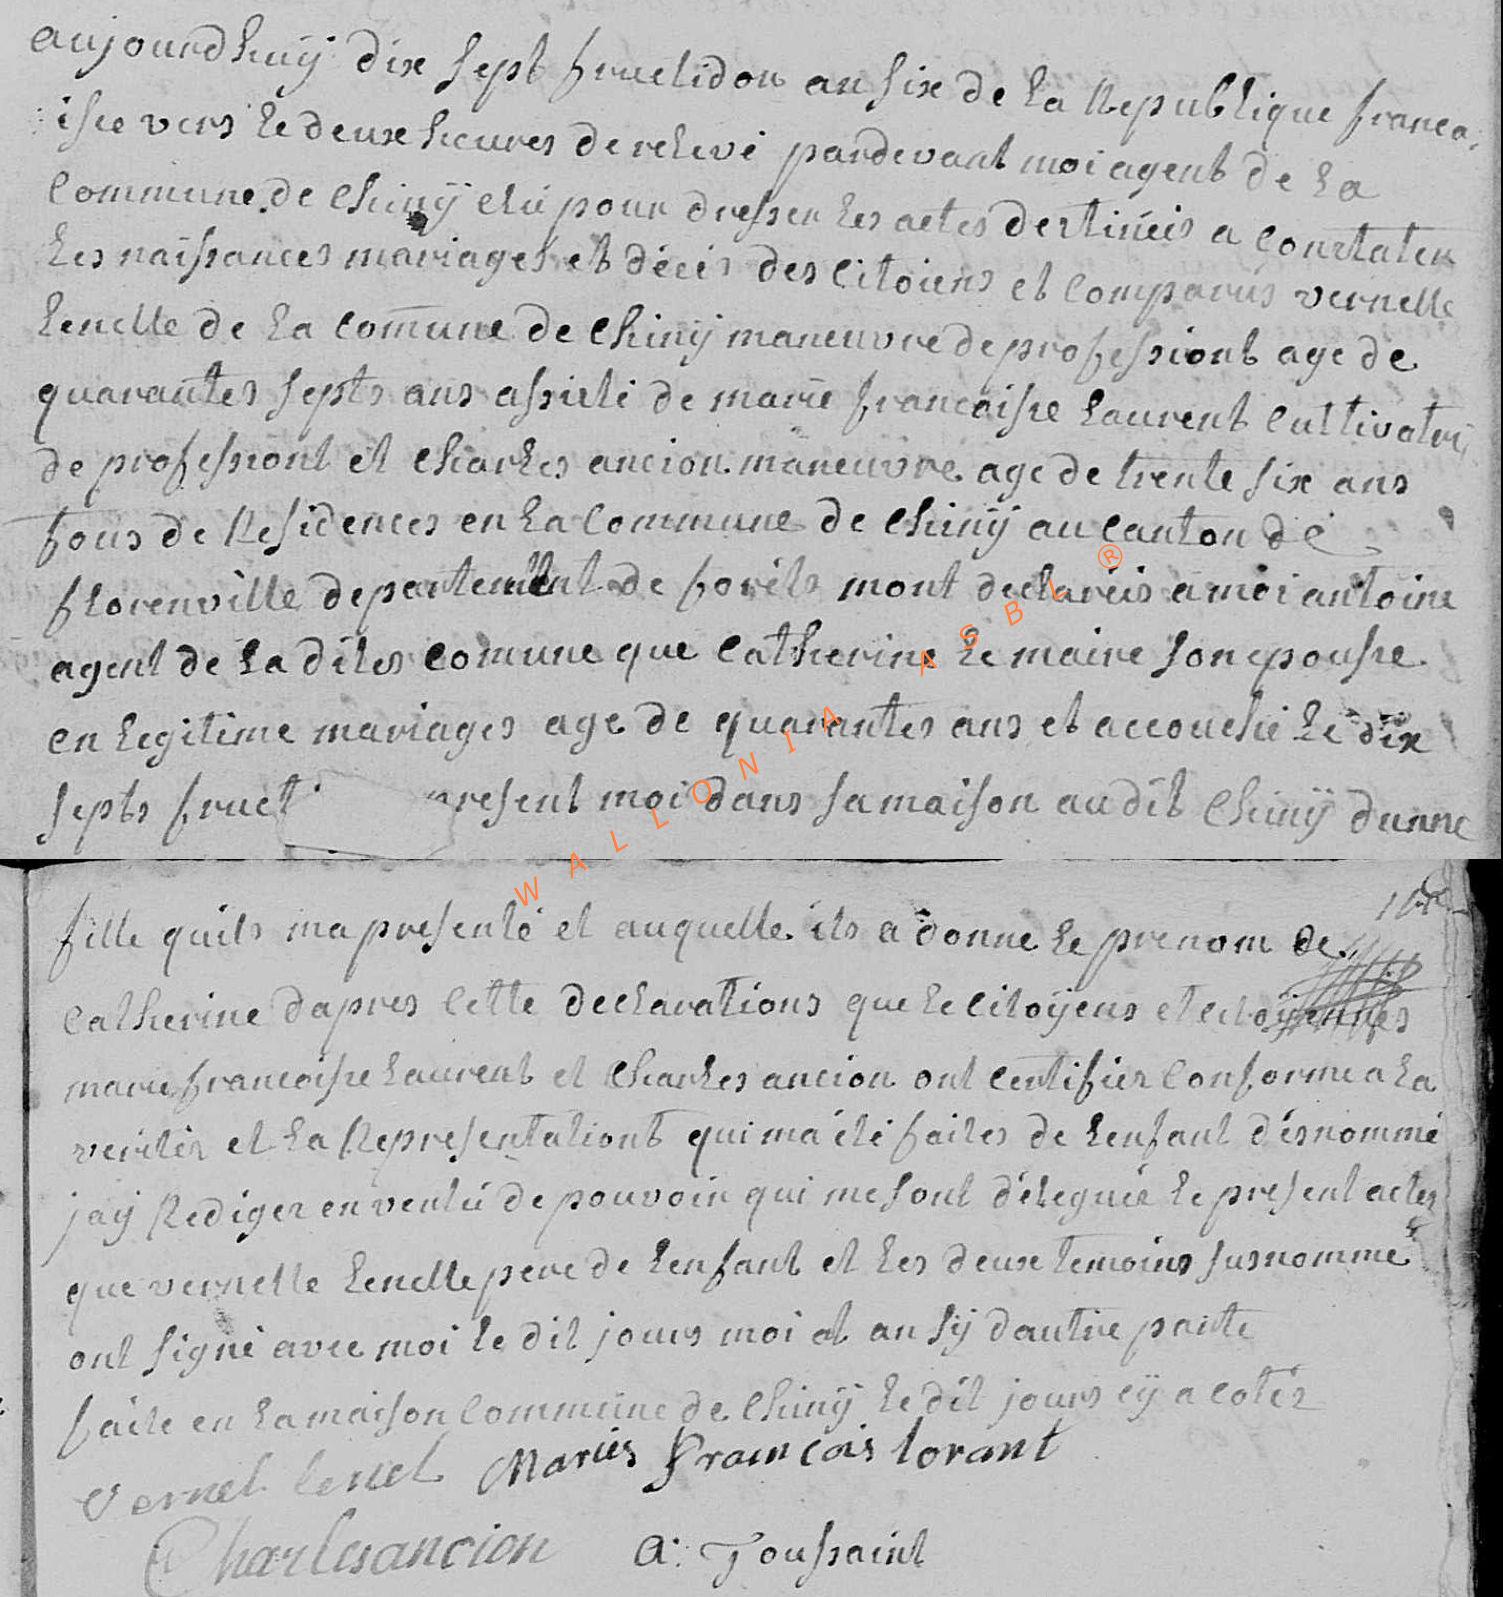 aujourdhuÿ dix sept fructidor an six de la Republique franca
ise vers le deux heures de relevé pardevant moi agent de la
Commune de Chinÿ elu pour dresser les actes destineis a constater
les naissances mariages et décés des Citoiens et Comparus vernelle
lenelle de la Comune de Chinÿ maneuvre de professiont age de
quarantes septs ans assisté de marie francoisse Laurent Cultivatri
de professiont et Charles ancion maneuvre age de trente six ans
tous de Residences en la Commune de Chinÿ au Canton de
florenville departement de foréts mont declareis a moi antoine
agent de la dites Comune que Catherine le maire son epousse
en legitime mariages age de quarantes ans et accouchié le dix
septs fruct present moi dans sa maison audit Chinÿ dunne
fille quils ma presenté et auquelle ils a donne le prenom de
Catherine dapres Cette declarations que le Citoÿens et citoÿennes
marie francoisse Laurent et Charles ancion ont Certifier Conforme a la
veritér et la Representationt qui ma été faites de lenfant désnommé
jaÿ Rediger en vertu de pouvoir qui me sont délegué le present actes
que vernelle lenelle pere de lenfant et les deux temoins susnommé
ont signé avec moi le dit jours moi et an sÿ dautre parte
faite en la maison Commune de Chinÿ le dit jours cÿ a Cotér
vernel lenel Mariés François lorant
Charles ancion a: Toussaint
W A L L O N I A A S B L ®